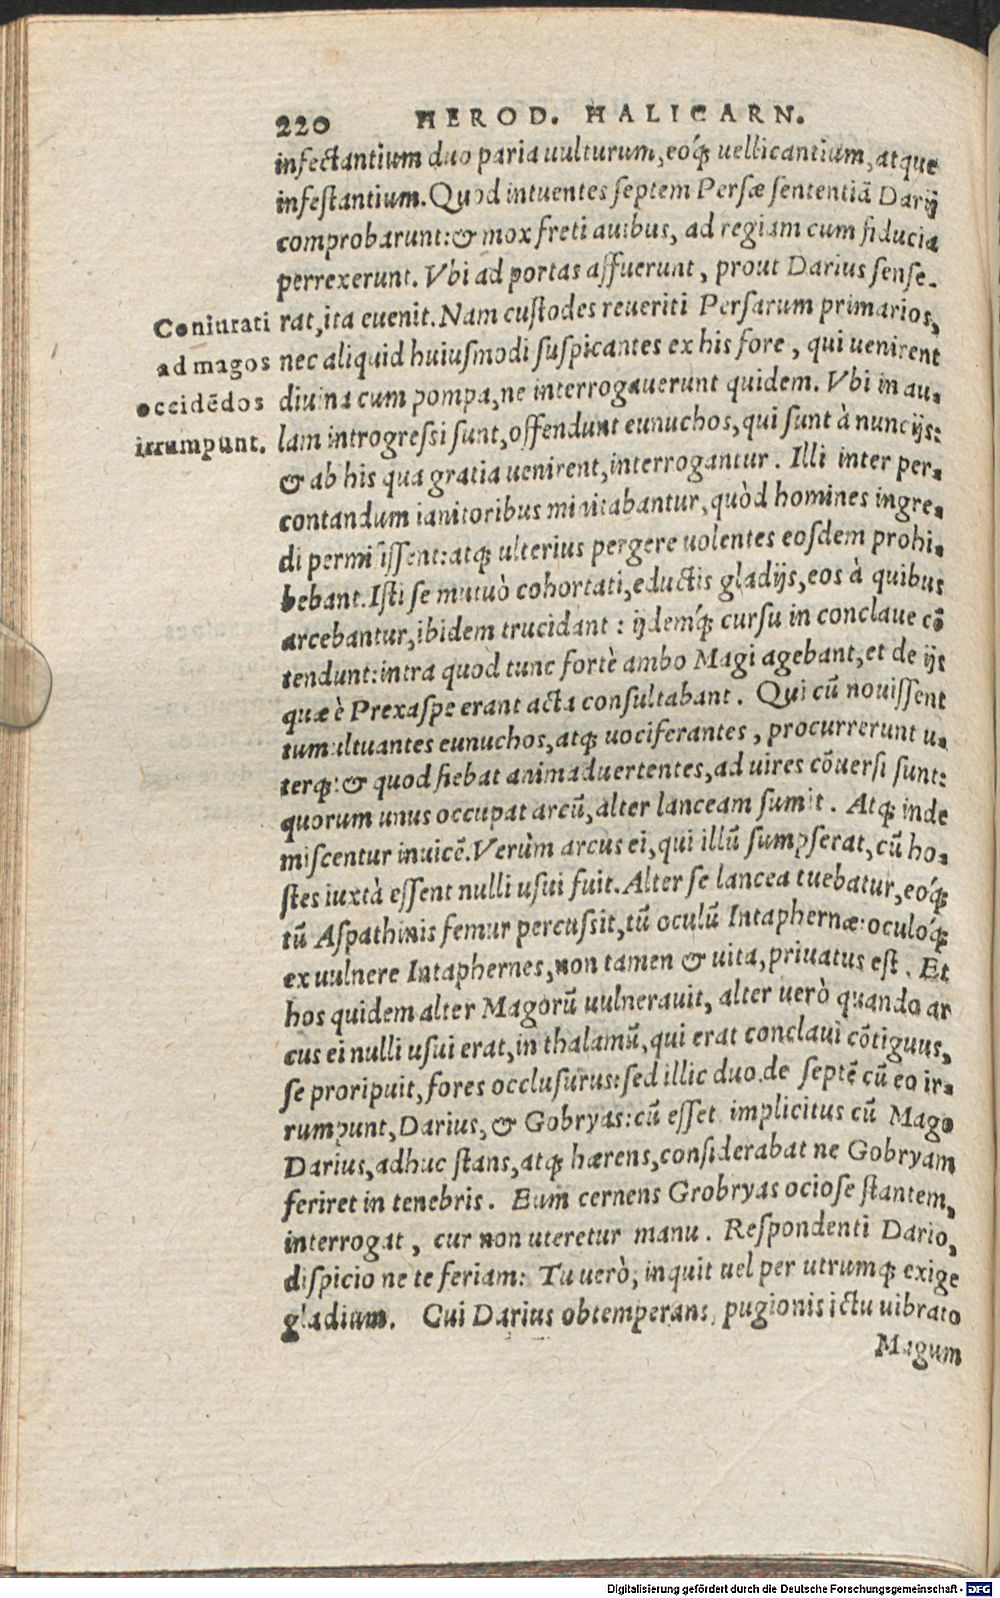 220 HEROD. HALICARN.
infectantium duo paria uulturum, eóq́; uellicantium, atque
infestantium. Quod intuentes septem Persæ sententiã Darij
comprobarunt: & mox freti auibus, ad regiam cum fiducia
perrexerunt. Vbi ad portas affuerunt, prout Darius sense-
rat, ita euenit. Nam custodes reueriti Persarum primarios,
nec aliquid huiusmodi suspicantes ex his fore, qui uenirent
diuina cum pompa, ne interrogauerunt quidem. Vbi in au-
lam introgressi sunt, offendunt eunuchos, qui sunt à nuncijs:
& ab his qua gratia uenirent, interrogantur. Illi inter per-
contandum ianitoribus minitabantur, quòd homines ingre-
di permisissent: atq; ulterius pergere uolentes eosdem prohi-
bebant. Isti se mutuò cohortati, eductis gladijs, eos à quibus
arcebantur, ibidem trucidant: ijdemq́; cursu in conclaue cõ
tendunt: intra quod tunc fortè ambo Magi agebant, et de ijs
quæ è Prexaspe erant acta consultabant. Qui cũ nouissent
tumultuantes eunuchos, atq; uociferantes, procurrerunt u-
terq;: & quod fiebat animaduertentes, ad uires cõuersi sunt:
quorum unus occupat arcũ, alter lanceam sumit. Atq; inde
miscentur inuicẽ. Verùm arcus ei, qui illũ sumpserat, cũ ho-
stes iuxtà essent nulli usui fuit. Alter se lancea tuebatur, eóq́;
tũ Aspathinis femur percussit, tũ oculũ Intaphernæ: oculóq́;
ex uulnere Intaphernes, non tamen & uita, priuatus est. Et
hos quidem alter Magorũ uulnerauit, alter uerò quando ar
cus ei nulli usui erat, in thalamũ, qui erat conclaui cõtiguus,
se proripuit, fores occlusurus: sed illic duo de septẽ cũ eo ir-
rumpunt, Darius, & Gobryas: cũ esset implicitus cũ Mago
Darius, adhuc stans, atq; hærens, considerabat ne Gobryam
feriret in tenebris. Eum cernens Grobryas ociose stantem,
interrogat, cur non uteretur manu. Respondenti Dario,
dispicio ne te feriam: Tu uerò, inquit uel per utrumq; exige
gladium. Cui Darius obtemperans, pugionis ictu uibrato
Magum
Coniurati
ad magos
occidẽdos
irrumpunt.
Digitalisierung gefördert durch die Deutsche Forschungsgemeinschaft - DFG